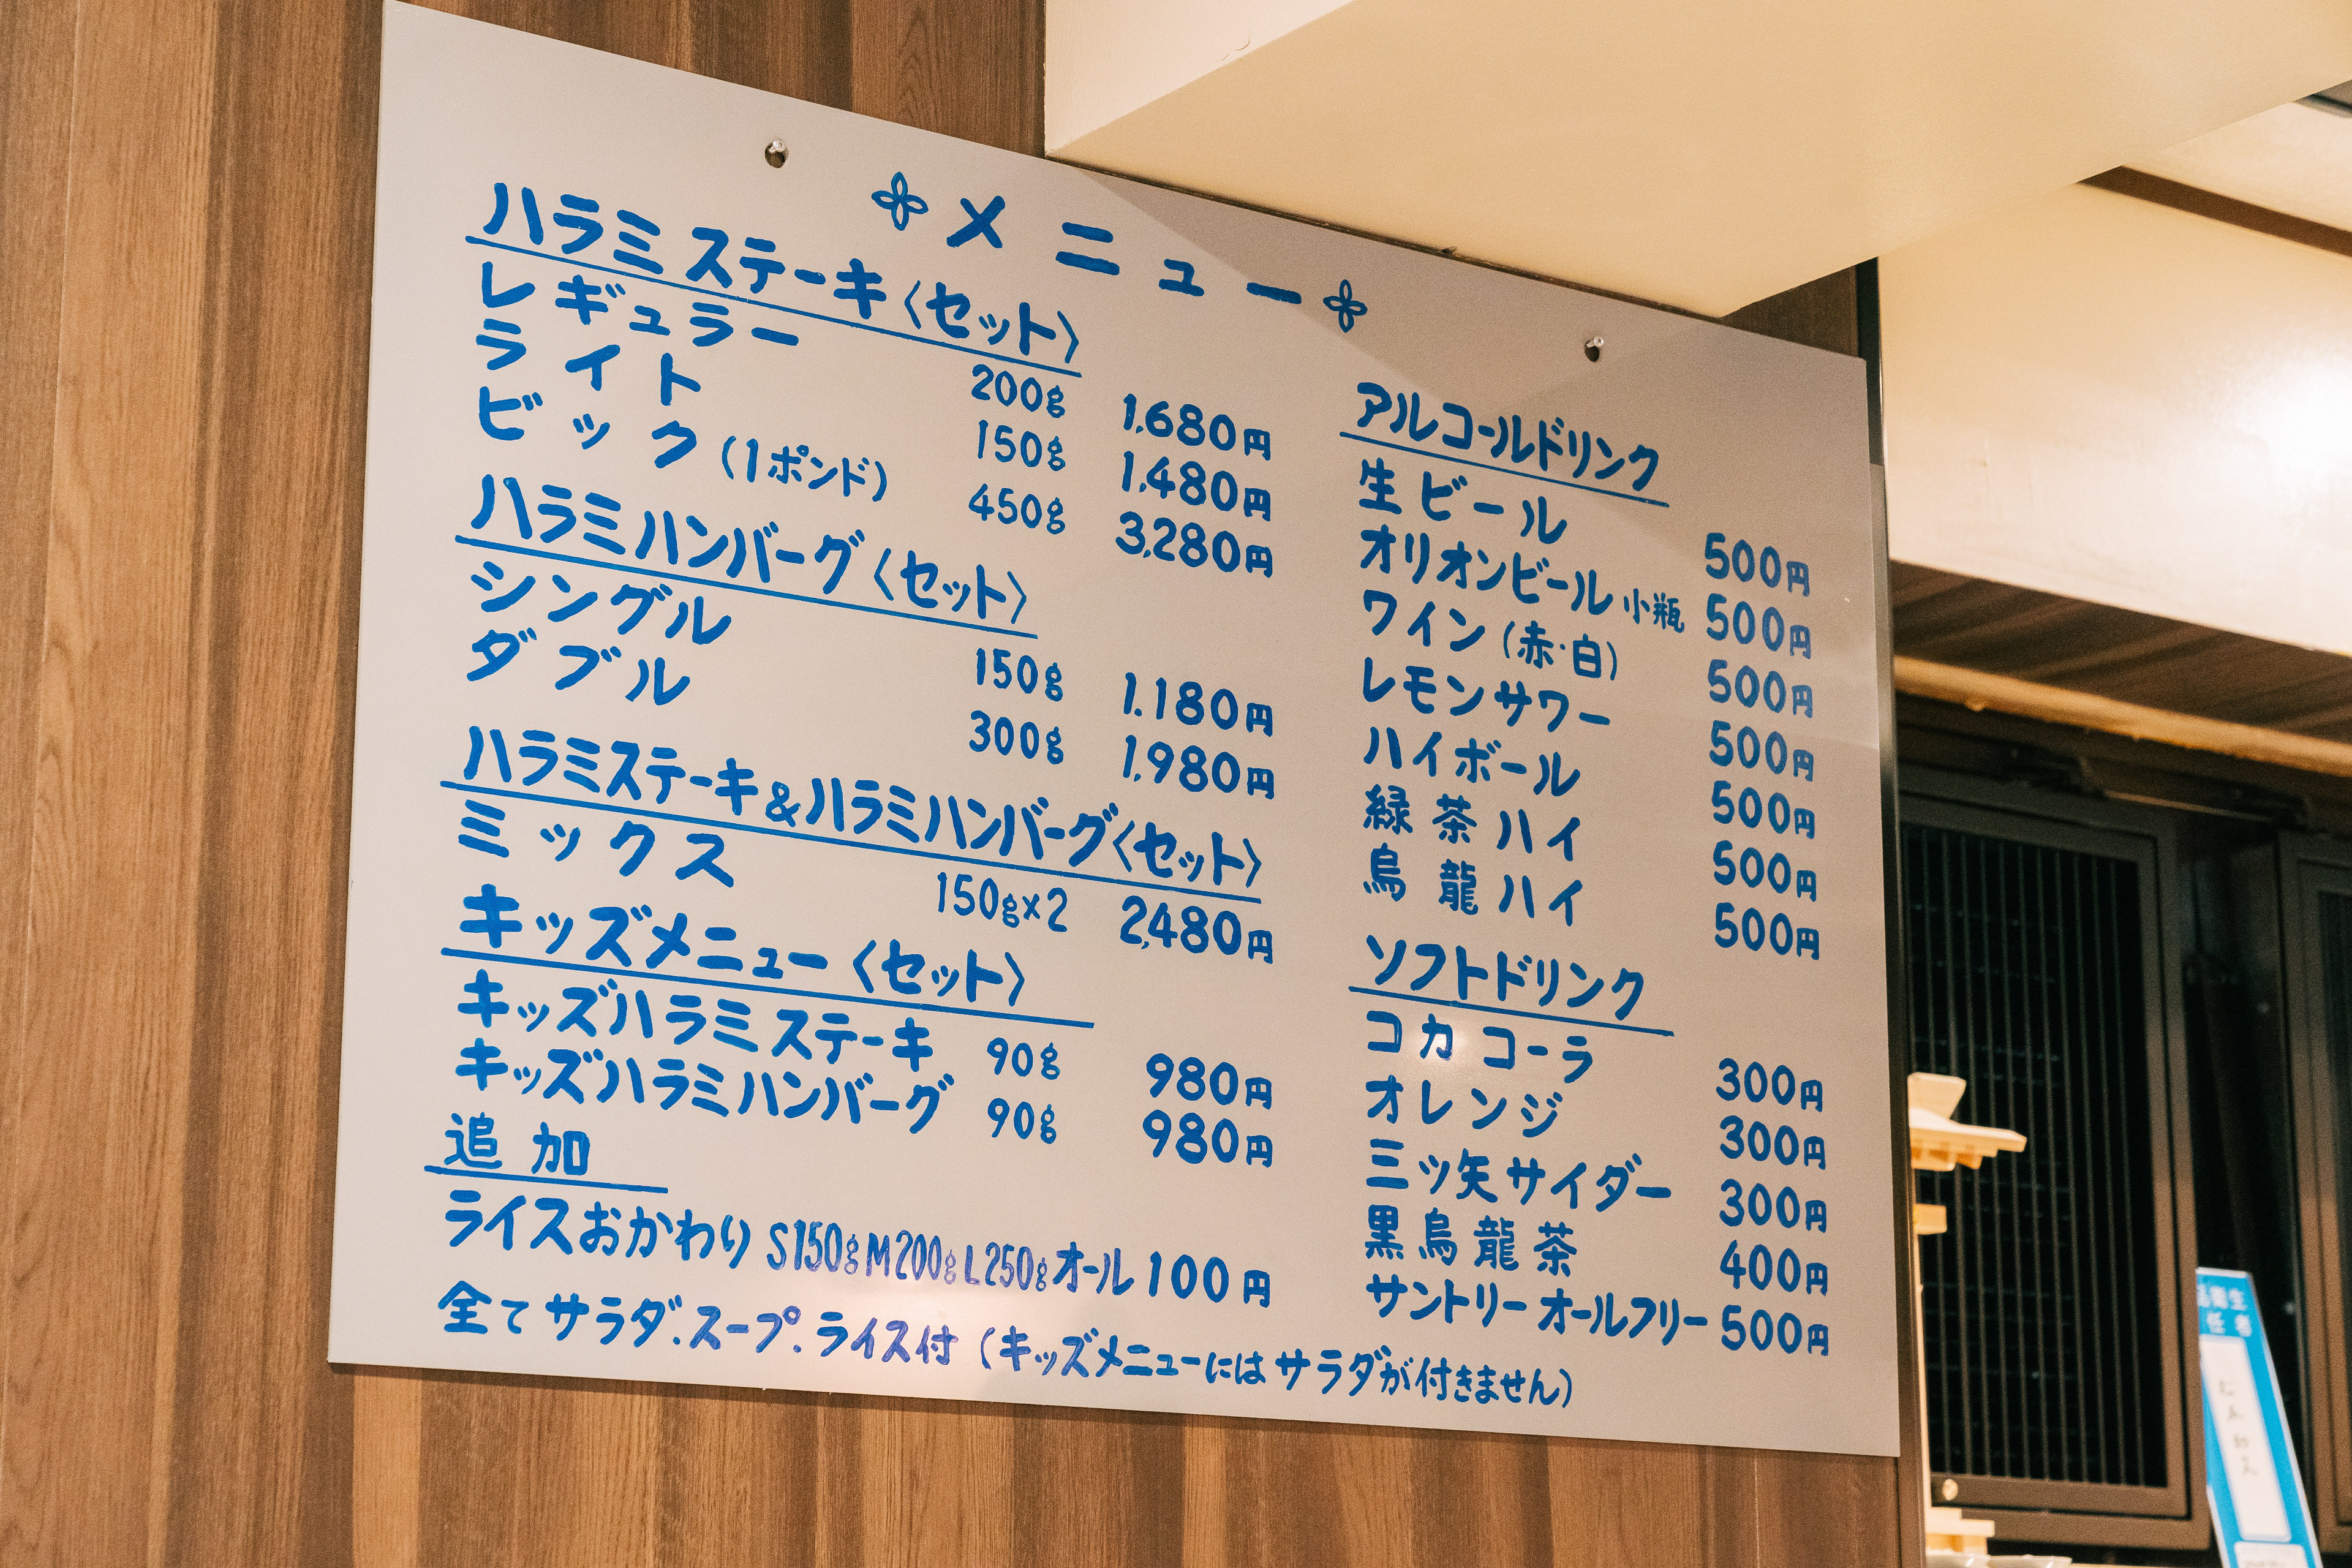 メニュー
ハラミステーキ〈セット〉
レギュラー 200g 1,680円
ライト 150g 1,480円
ビック(1ポンド) 450g 3,280円
ハラミハンバーグ〈セット〉
シングル 150g 1.180円
ダブル 300g 1,980円
ハラミステーキ&ハラミハンバーグ〈セット〉
ミックス 150g×2 2,480円
キッズメニュー〈セット〉
キッズハラミステーキ 90g 980円
キッズハラミハンバーグ 90g 980円
追加
ライスおかわり S150g M200g L250g オール 100円
全てサラダ.スープ.ライス付(キッズメニューにはサラダが付きません)
アルコールドリンク
生ビール 500円
オリオンビール 小瓶 500円
ワイン(赤・白) 500円
レモンサワー 500円
ハイボール 500円
緑茶ハイ 500円
烏龍ハイ 500円
ソフトドリンク
コカコーラ 300円
オレンジ 300円
三ツ矢サイダー 300円
黒烏龍茶 400円
サントリー オールフリー 500円